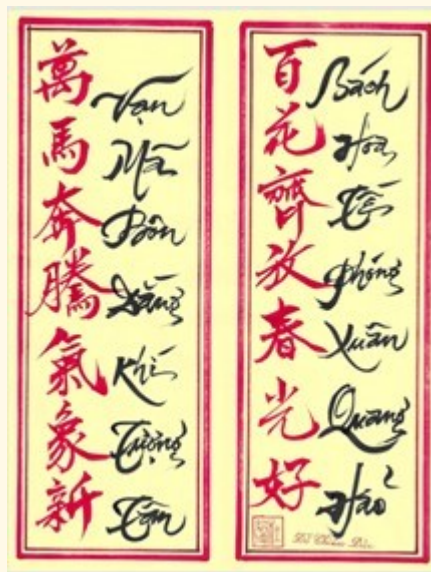 萬馬奔騰氣象新
Vạn Mã Bôn Đằng Khí Tượng Tân
百花齊放春光好
Bách Hoa Tề Phóng Xuân Quang Hảo